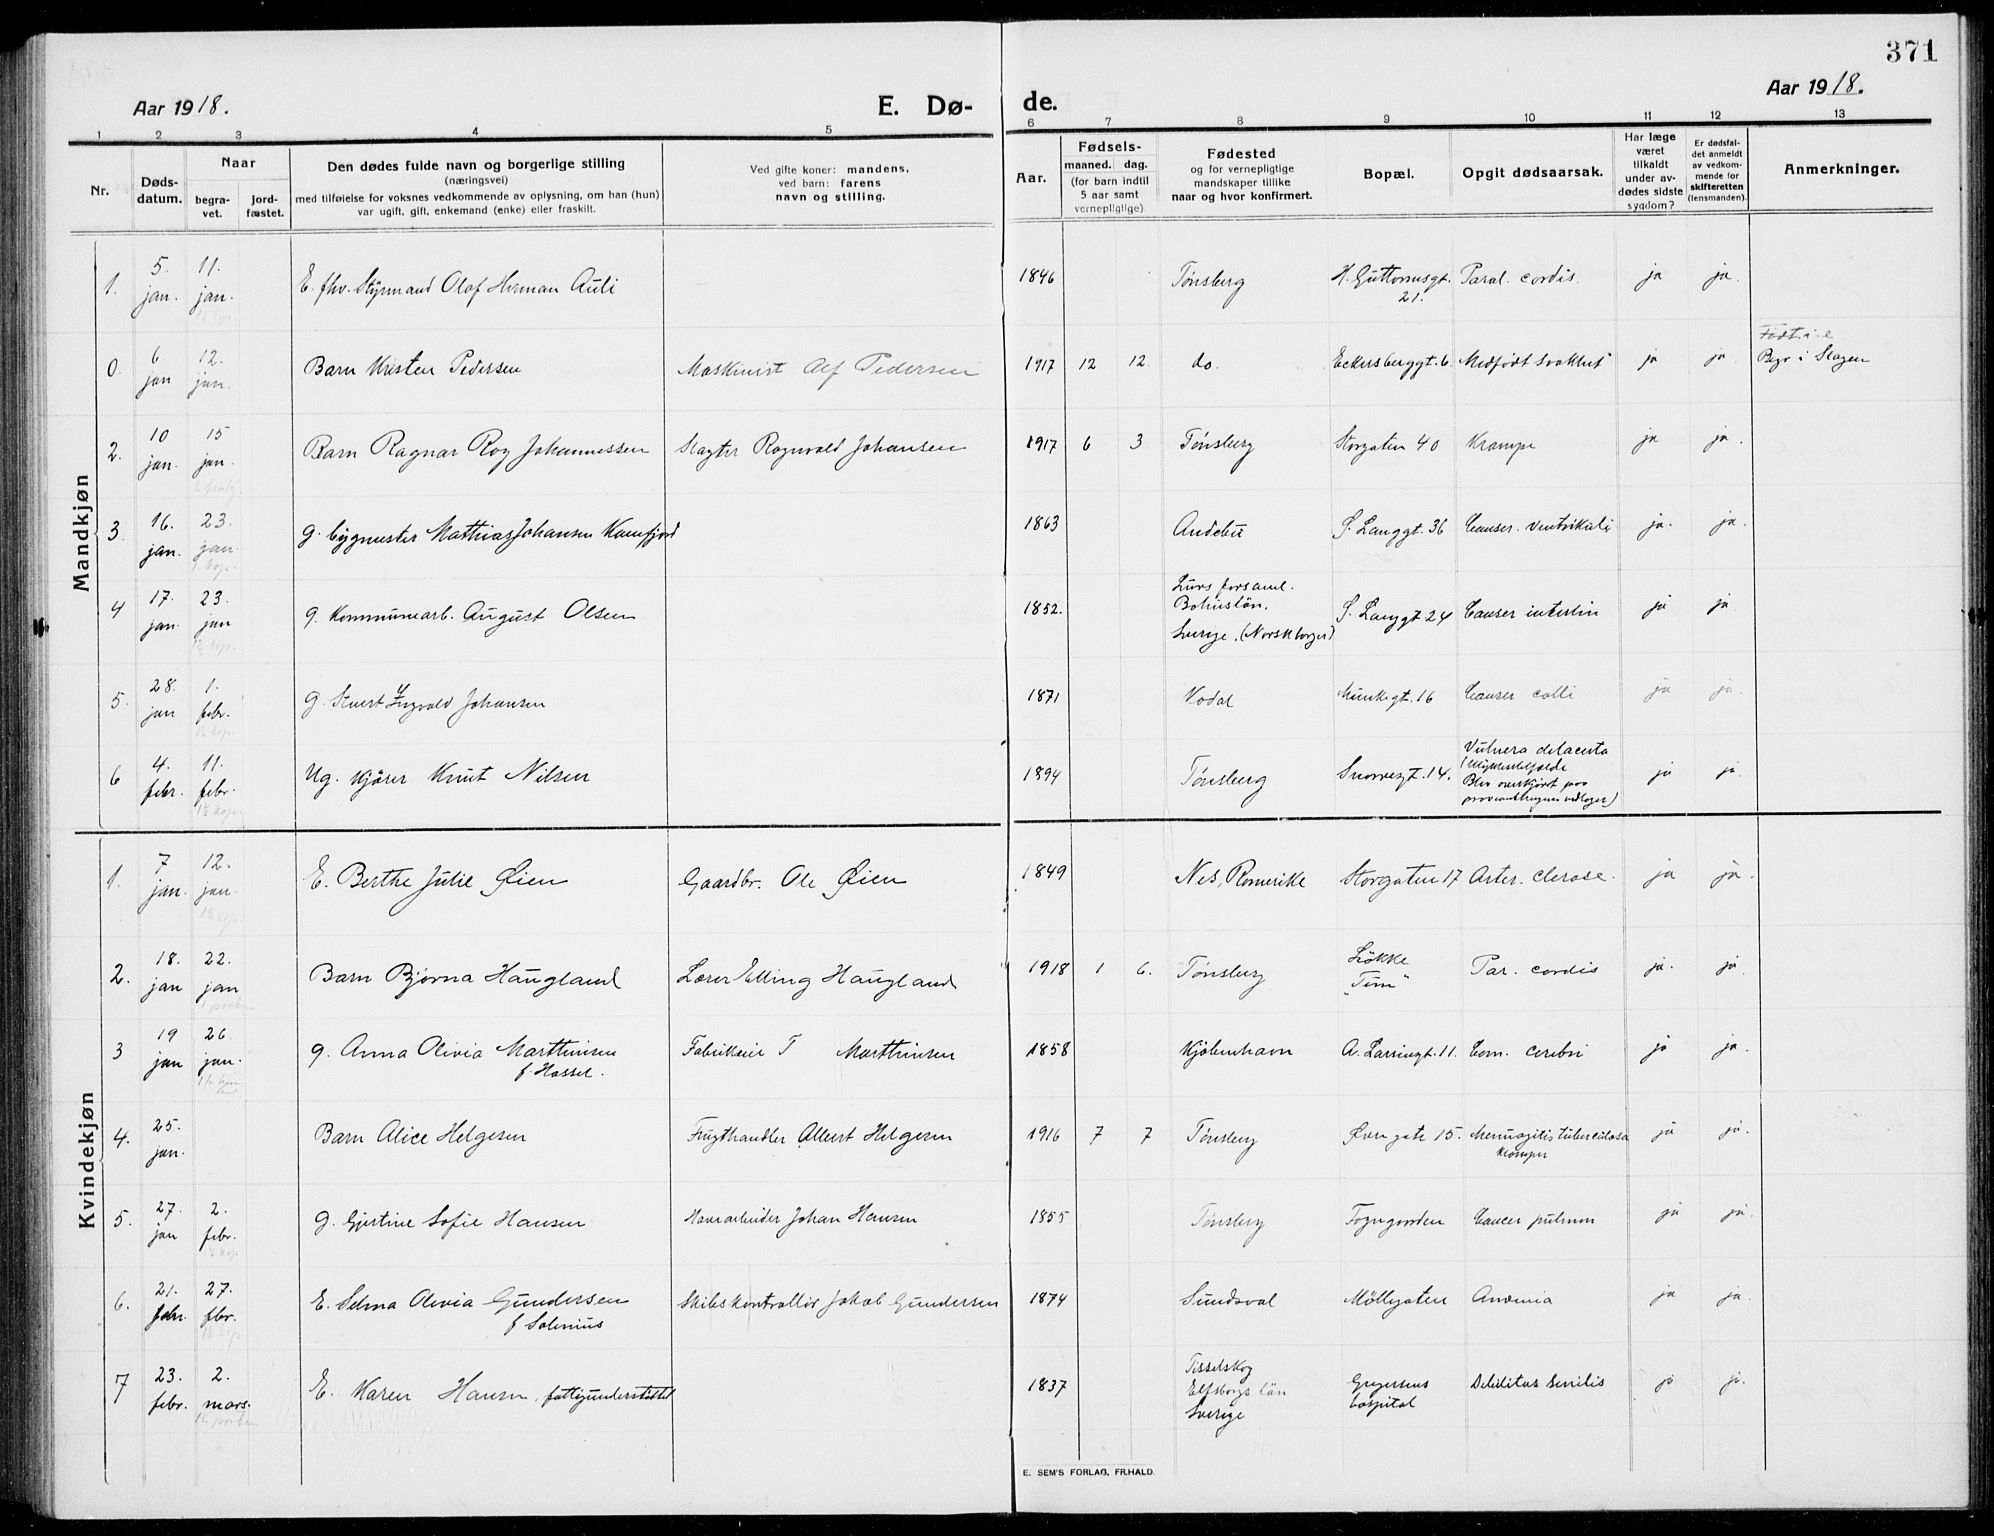 371
Aar 1918.
E. Dø-
de.
Aar 1918.
1 2 3 4 5 6 7 8 9 10 11 12 13
Nr.
Døds-
datum.
Naar
begra-
vet.
jord-
fæstet.
Den dødes fulde navn og borgerlige stilling
(næringsvei)
med tilføielse for voksnes vedkommende av oplysning, om han (hun)
var ugift, gift, enkemand (enke) eller fraskilt.
Ved gifte koner: mandens,
ved barn: farens
navn og stilling.
Aar.
Fødsels-
maaned. dag.
(for barn indtil
5 aar samt
vernepligtige)
Fødested
og for vernepligtige
mandskaper tillike
naar og hvor konfirmert.
Bopæl.
Opgit dødsaarsak.
Har læge
været
tilkaldt
under av-
dødes sidste
sygdom?
Er dødsfal-
det anmeldt
av vedkom-
mende for
skifteretten
(lensmanden).
Anmerkninger.
Mandkjøn
1. 5. jan. 11. jan. E. fhv. Styrmand Olaf Herman Auli 1846 Tønsberg H. Guttormsgt. 21. Paral. cordis. ja ja.
0. 6 jan 12. jan. Barn Kristen Pedersen Maskinist Alf Pedersen 1917 12 12. do. Eckersberggt. 6 Medfødt svakhet ja ja. Begr i Slagen
2. 10 jan. 15 jan. Barn Ragnar Roy Johannessen Slagter Ragnvald Johansen 1917 6 3 Tønsberg Storgaten 40 Krampe ja ja.
3 16. jan. 23. jan. g. bygmester Mathias Johansen Kamfjord 1863 Andebu S. Langgt. 36 Canser. ventrikuli ja. ja.
4 17. jan. 23. jan g. Kommunearb. August Olsen 1852. Lurs forsaml.
Bohuslän.
Sverige. (Norsk borger) S. Langgt 24 Canser intestin ja ja
5. 28. jan 1. febr. g. Stuert Yngvald Johansen 1871 Kodal Munkegt. 16 Canser colli ja ja.
6 4. febr. 11. febr. Ug. kjører Knut Nilsen 1894 Tønsberg Snorresgt. 14. Vulnera
(Ulykkestilfælde
Blev overkjørt paa
) ja ja.
Kvindekjøn
1. 7 jan. 12. jan. E. Berthe Julie Øien Gaardbr. Ole Øien 1849 Nes, Romerike Storgaten 17 Arter. clerose. ja ja.
2. 18. jan 22. jan Barn Bjørna Haugland Lærer Elling Haugland 1918 1 6. Tønsberg Løkke
"Tim" Par. cordis ja. ja.
3 19 jan 26 jan. g. Anna Olivia Marthinsen
f. Hassel. Fabrikeier T Marthinsen 1858 Kjøbenhavn A. Larsensgt. 11. Com. cerebri ja ja.
4. 25. jan. Barn Alice Helgesen Frugthandler Albert Helgesen 1916 7 7 Tønsberg Øvre gate 15. Meningitis tuberculosa
Kramper ja ja.
5. 27. jan 2. febr. g. Gjertine Sofie Hansen Havearbeider Johan Hansen 1855 Tønsberg Fogngaarden Cancer pulmon ja ja.
6. 21. febr. 27. fbr. E. Selma Olivia Gundersen
f Salenius Skibskontrollør Jakob Gundersen 1874 Sundsval Møllegaten Anæmia ja ja.
7 23. febr. 2. mars. E. Karen Hansen, fattigunderstøttet 1837 Tisselskog
Elfsborgs län
Sverige Gregersens
hospital Debilitas senilis ja ja.
E. SEM'S FORLAG, FR.HALD.